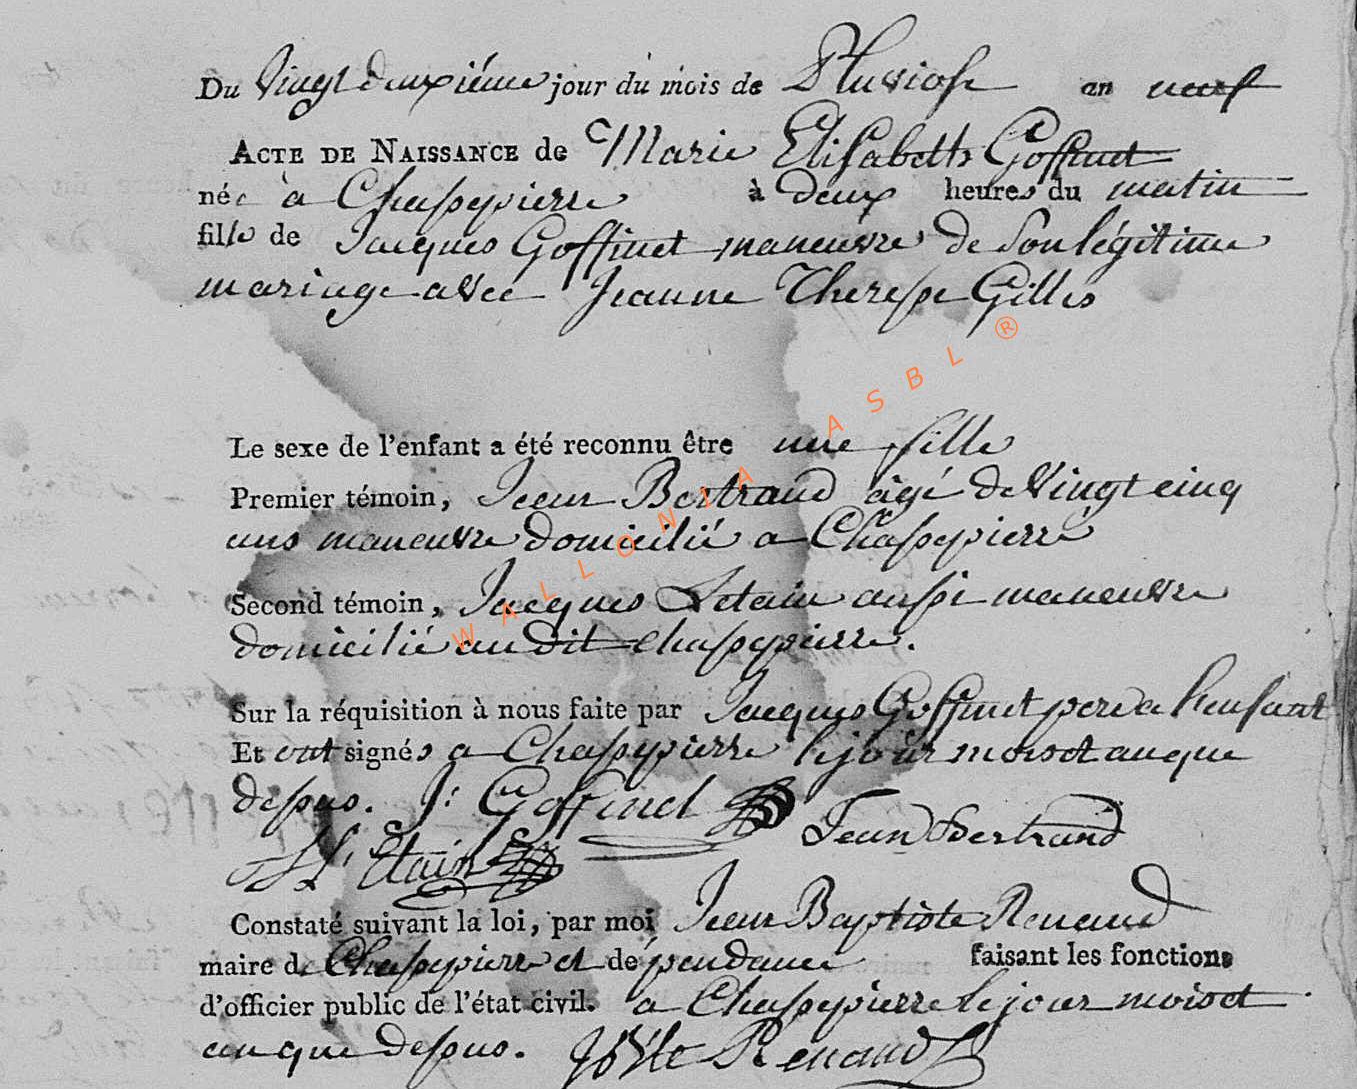 Du Vingt deuxiéme jour du mois de Pluviose an neuf
ACTE DE NAISSANCE de Marie Elisabeth Goffinet
née à Chassepierre à deux heures du matin
fille de Jacques Goffinet maneuvre de Son légitime
mariage avec Jeanne Theresse Gilles
Le sexe de l'enfant a été reconnu être une fille
Premier témoin, Jean Bertrand âgé de Vingt cinq
ans maneuvre domicilié a Chassepierre
Second témoin, Jacques Letain aussi maneuvre
domicilié au dit Chassepierre.
Sur la réquisition à nous faite par Jacques Goffinet pere a l'enfant
Et ont signés a Chassepierre le jour mois et an que
dessus. J: Goffinet Jean Bertrand
Constaté suivant la loi, par moi Jean Baptiste Renaud
maire de Chassepierre et dépendance faisant les fonctions
d'officier public de l'état civil. a Chassepierre le jour mois et
an que dessus. Renaud
WALLONIA ASBL ®